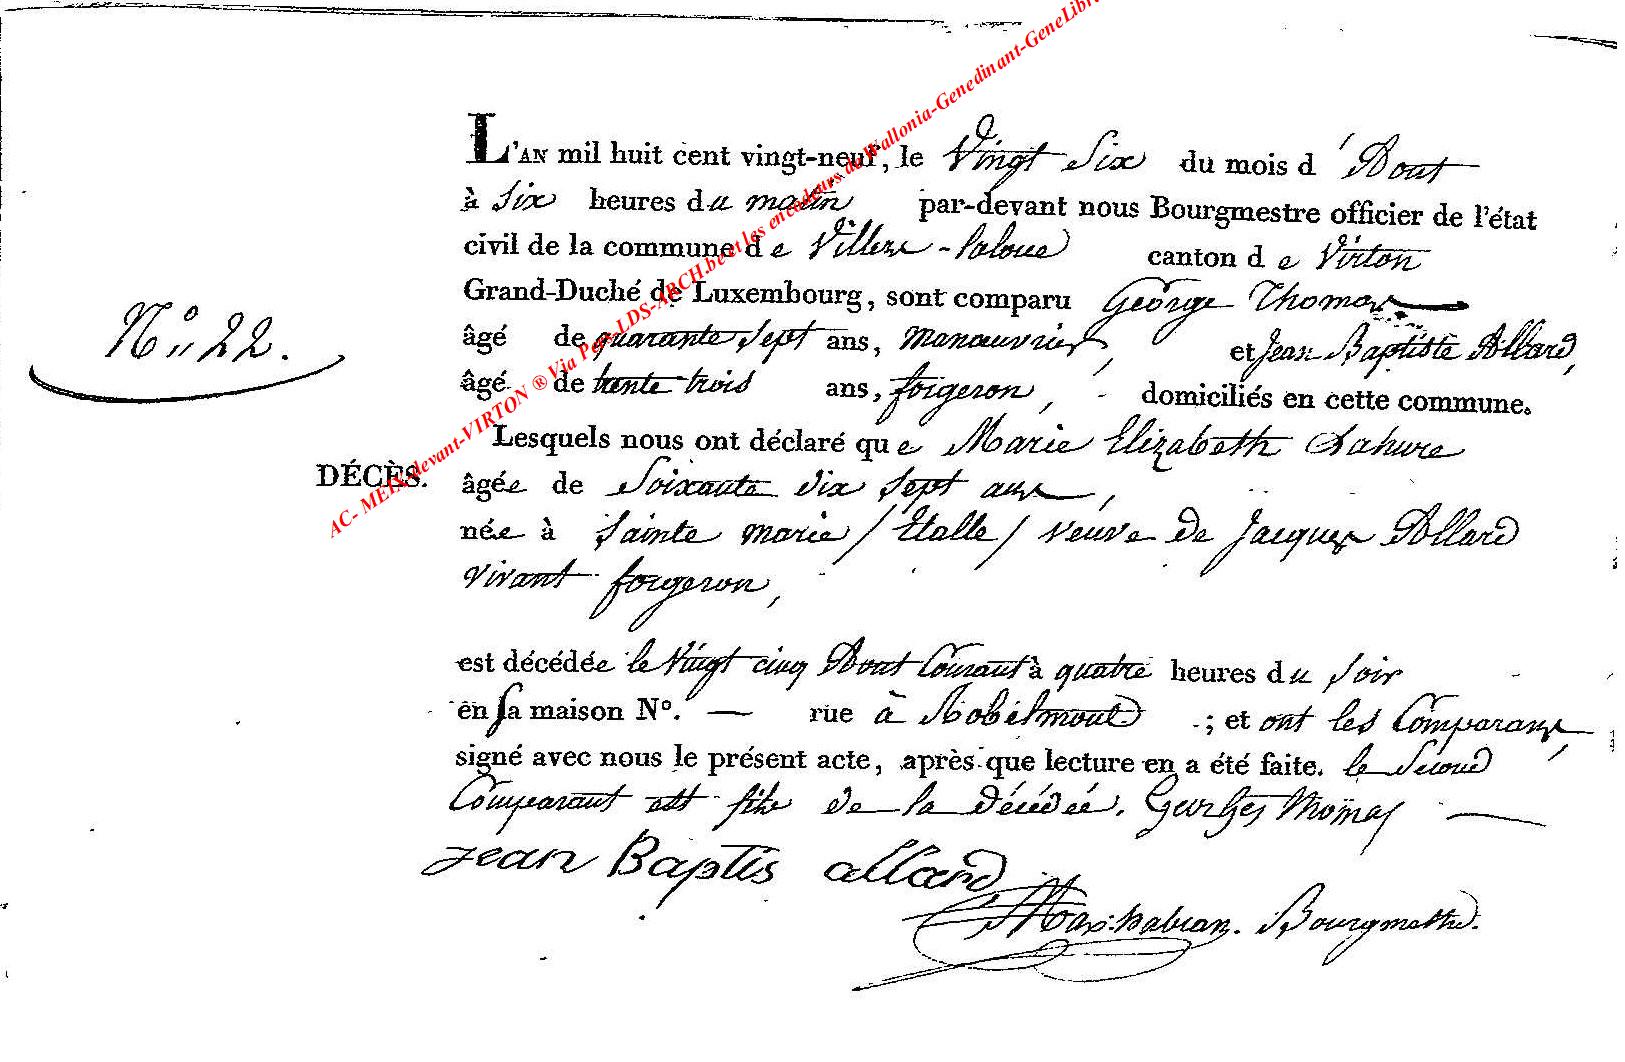 AC- MEIX-devant-VIRTON ® Via Pers-LDS-ARCH.be et les encodeurs de Wallonia-Genedinant-GeneLibr
L'AN mil huit cent vingt-neuf, le Vingt Six du mois d'Aout
à Six heures du matin par-devant nous Bourgmestre officier de l'état
civil de la commune de Villers-laloue canton de Virton
Grand-Duché de Luxembourg, sont comparu George Thomas
N° 22.
âgé de quarante sept ans, manœuvrier, et Jean Baptiste Allard,
âgé de trente trois ans, forgeron, domiciliés en cette commune.
Lesquels nous ont déclaré que Marie Elizabeth Lahure
DÉCÈS.
âgée de Soixante dix sept ans,
née à Sainte marie / Etalle / veuve de Jacques Allard
vivant forgeron,
est décédée le Vingt cinq Aout Courant à quatre heures du soir
en sa maison N°. — rue à Robelmont ; et ont les Comparans,
signé avec nous le présent acte, après que lecture en a été faite. le Second
Comparant est fils de la décédée. Georges Thomas
Jean Baptis allard
Bourgmestre.